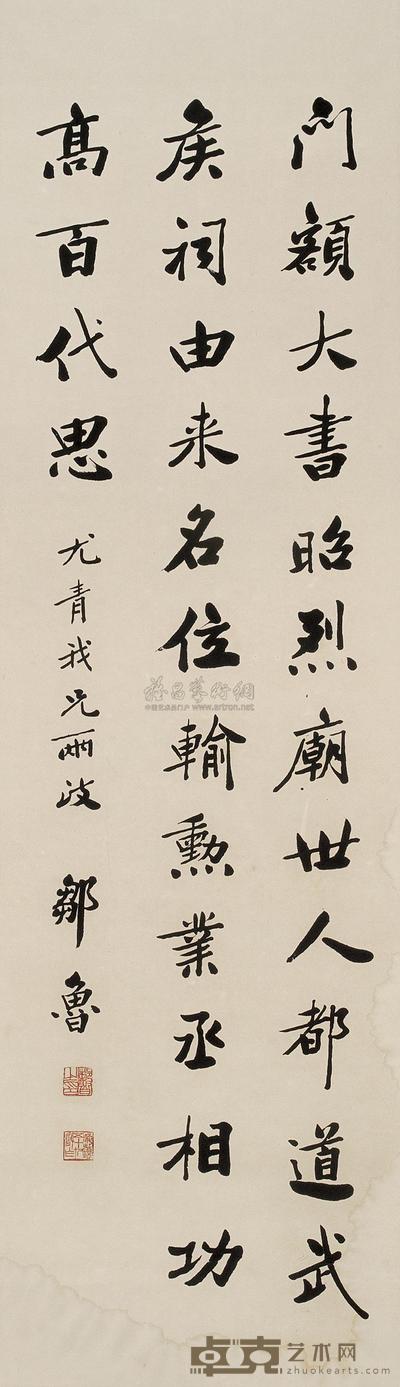 門額大書昭烈廟世人都道武
矦祠由来名位輸勲業丞相功
高百代思
尤青我兄兩政
鄒魯
雅昌藝術網
中国艺术品门户 www.artron.net
卓克艺术网
zhuokearts.com